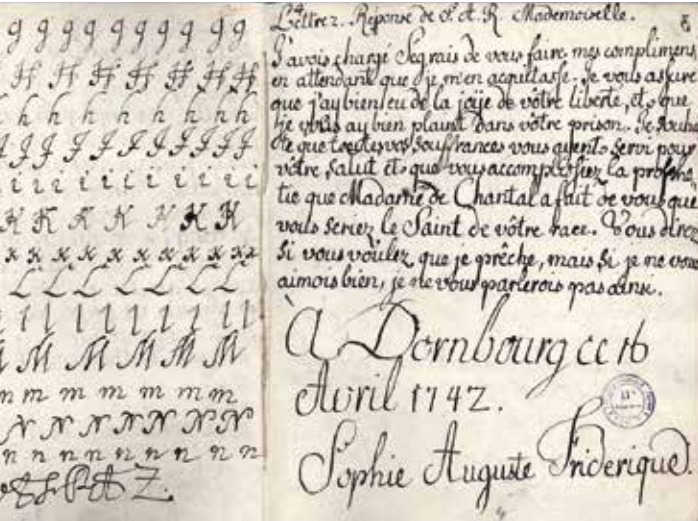 g g g g g g g g g
H H H H H H H
h h h h h h h h
J J J J J J J J J
i i i i i i i i i
K K K K K K K
k k k k k k k k k k
L L L L L L L
l l l l l l l l l
M M M M M M
m m m m m m m
N N N N N N N N
n n n n n n n n n
Z.
Lettre 2. Réponse de S. A. R. Mademoiselle.
J'avois chargé Segrais de vous faire mes complimens
en attendant que je m'en acquitasse. Je vous assure
que j'ay bien eu de la joije de vôtre liberté, et que
je vous ay bien plaint dans vôtre prison. Je souhai
te que toutes vos souffrances vous ayent servi pour
vôtre salut et que vous accomplissiez la prophe
tie que Madame de Chantal a fait de vous que
vous seriez le Saint de vôtre race. Vous direz
si vous voulez que je prêche, mais si je ne vous
aimois bien, je ne vous parlerois pas ainsi.
À Dornbourg ce 16
Avril 1742.
Sophie Auguste Friderique.